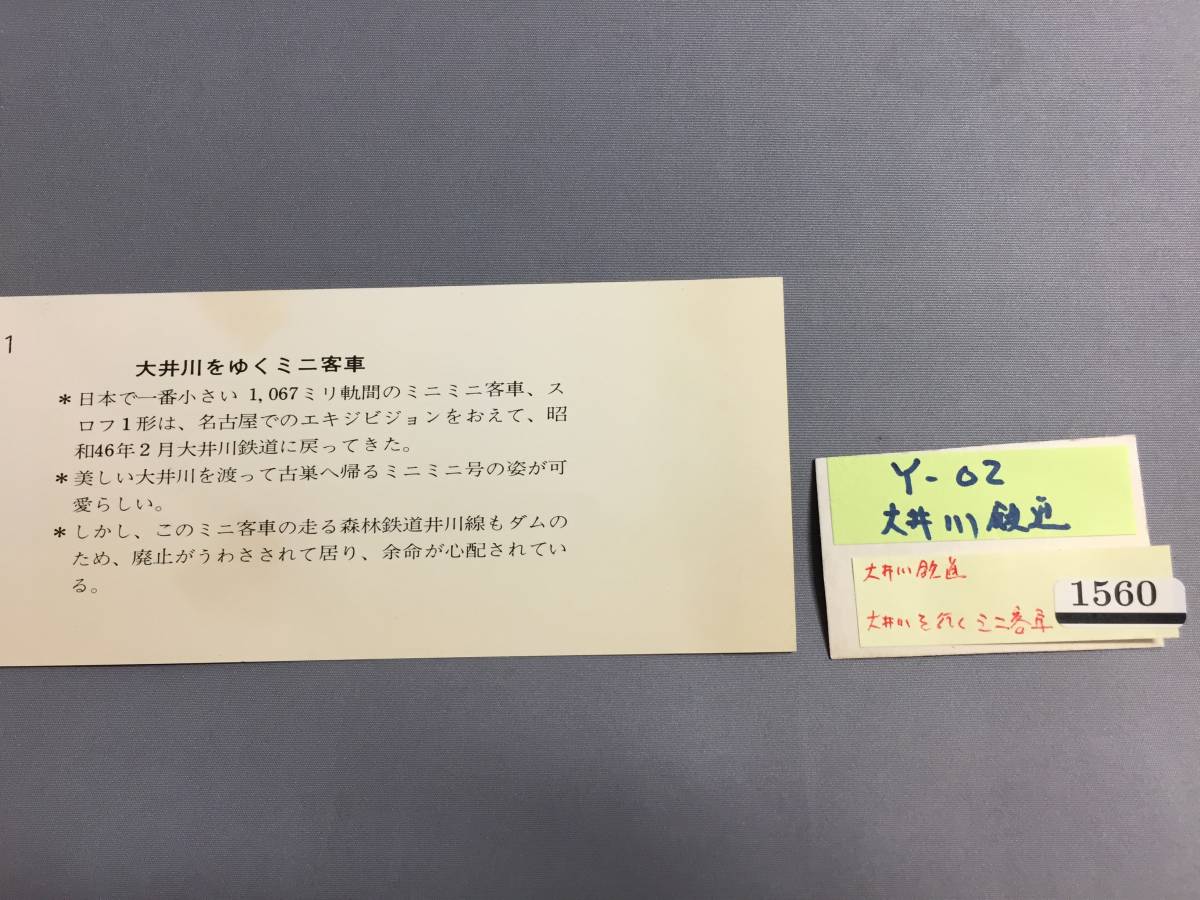 1
大井川をゆくミニ客車
＊日本で一番小さい 1,067ミリ軌間のミニミニ客車、ス
ロフ1形は、名古屋でのエキジビジョンをおえて、昭
和46年2月大井川鉄道に戻ってきた。
＊美しい大井川を渡って古巣へ帰るミニミニ号の姿が可
愛らしい。
＊しかし、このミニ客車の走る森林鉄道井川線もダムの
ため、廃止がうわさされて居り、余命が心配されてい
る。
Y-02
大井川鉄道
大井川鉄道
大井川を行くミニ客車
1560